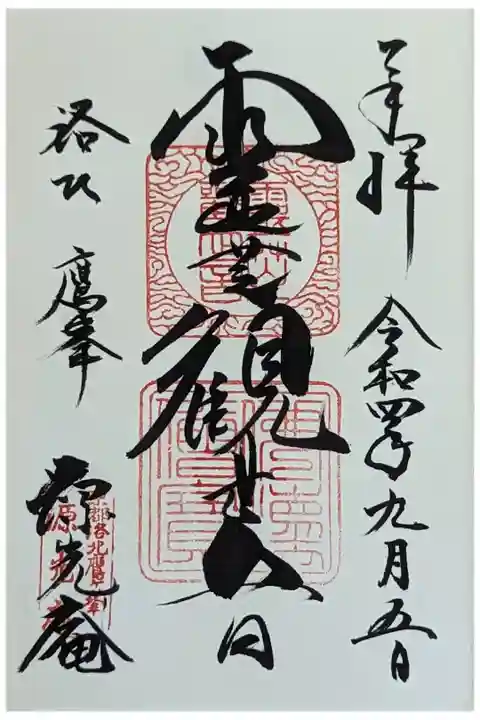 奉拝 令和四年九月五日
霊芝観世音
洛北 鷹峯
源光庵
京都洛北鷹峯
源光庵